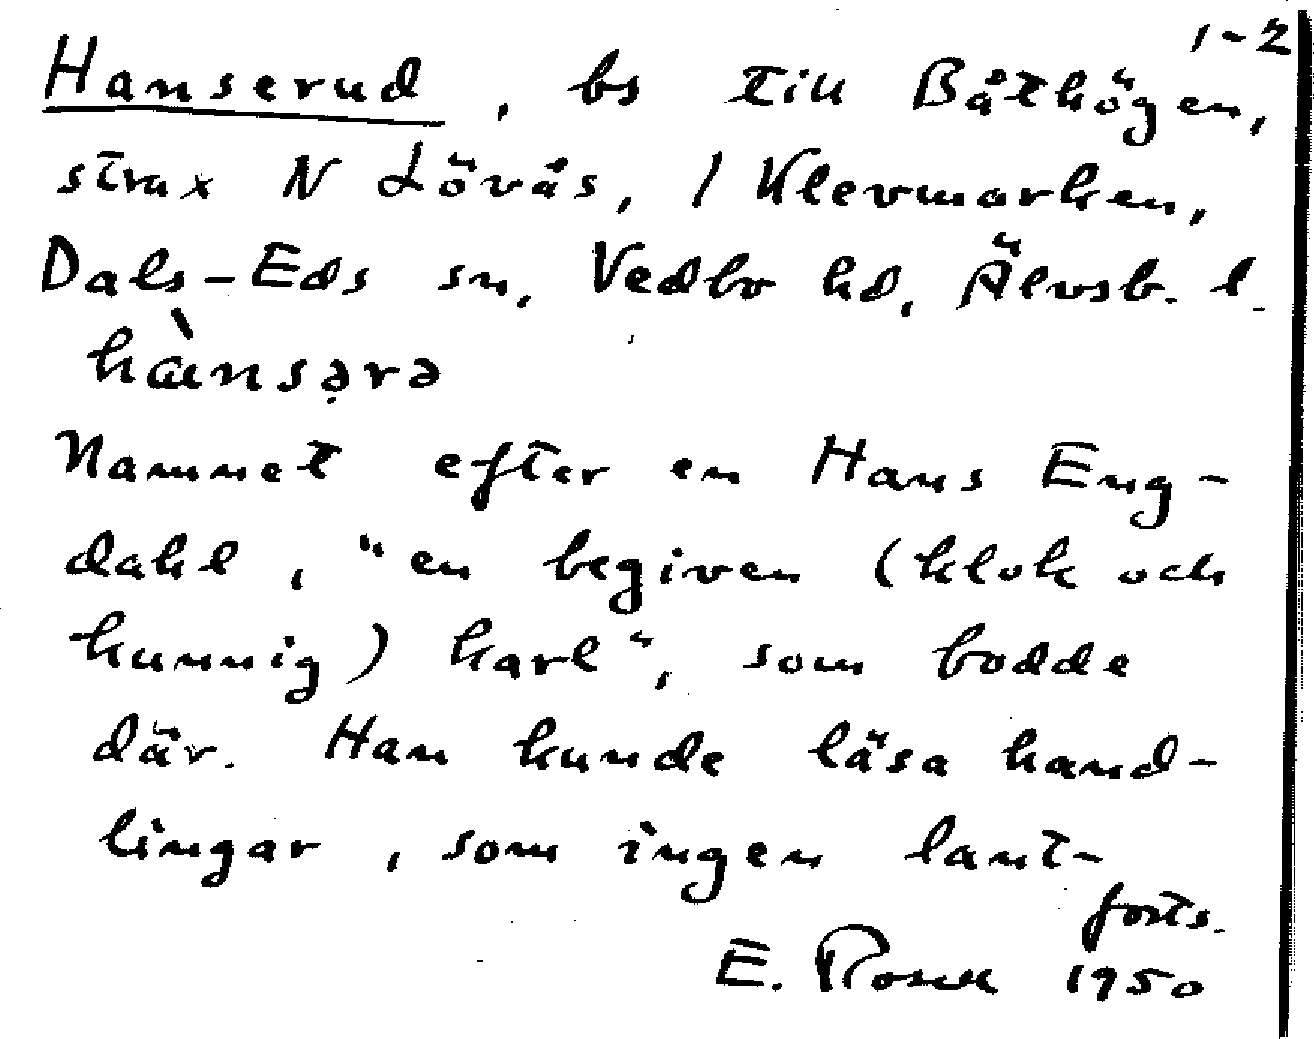 1-2
Hanserud, bs till Båthögen,
strax N Lövås, / Klevmarken,
Dals-Eds sn, Vedbo hd, Älvsb. l.
hànsərə
Namnet efter en Hans Eng-
dahl, "en begiven (klok och
kunnig) karl", som bodde
där. Han kunde läsa hand-
lingar, som ingen lant-
forts.
E. Rosell 1950